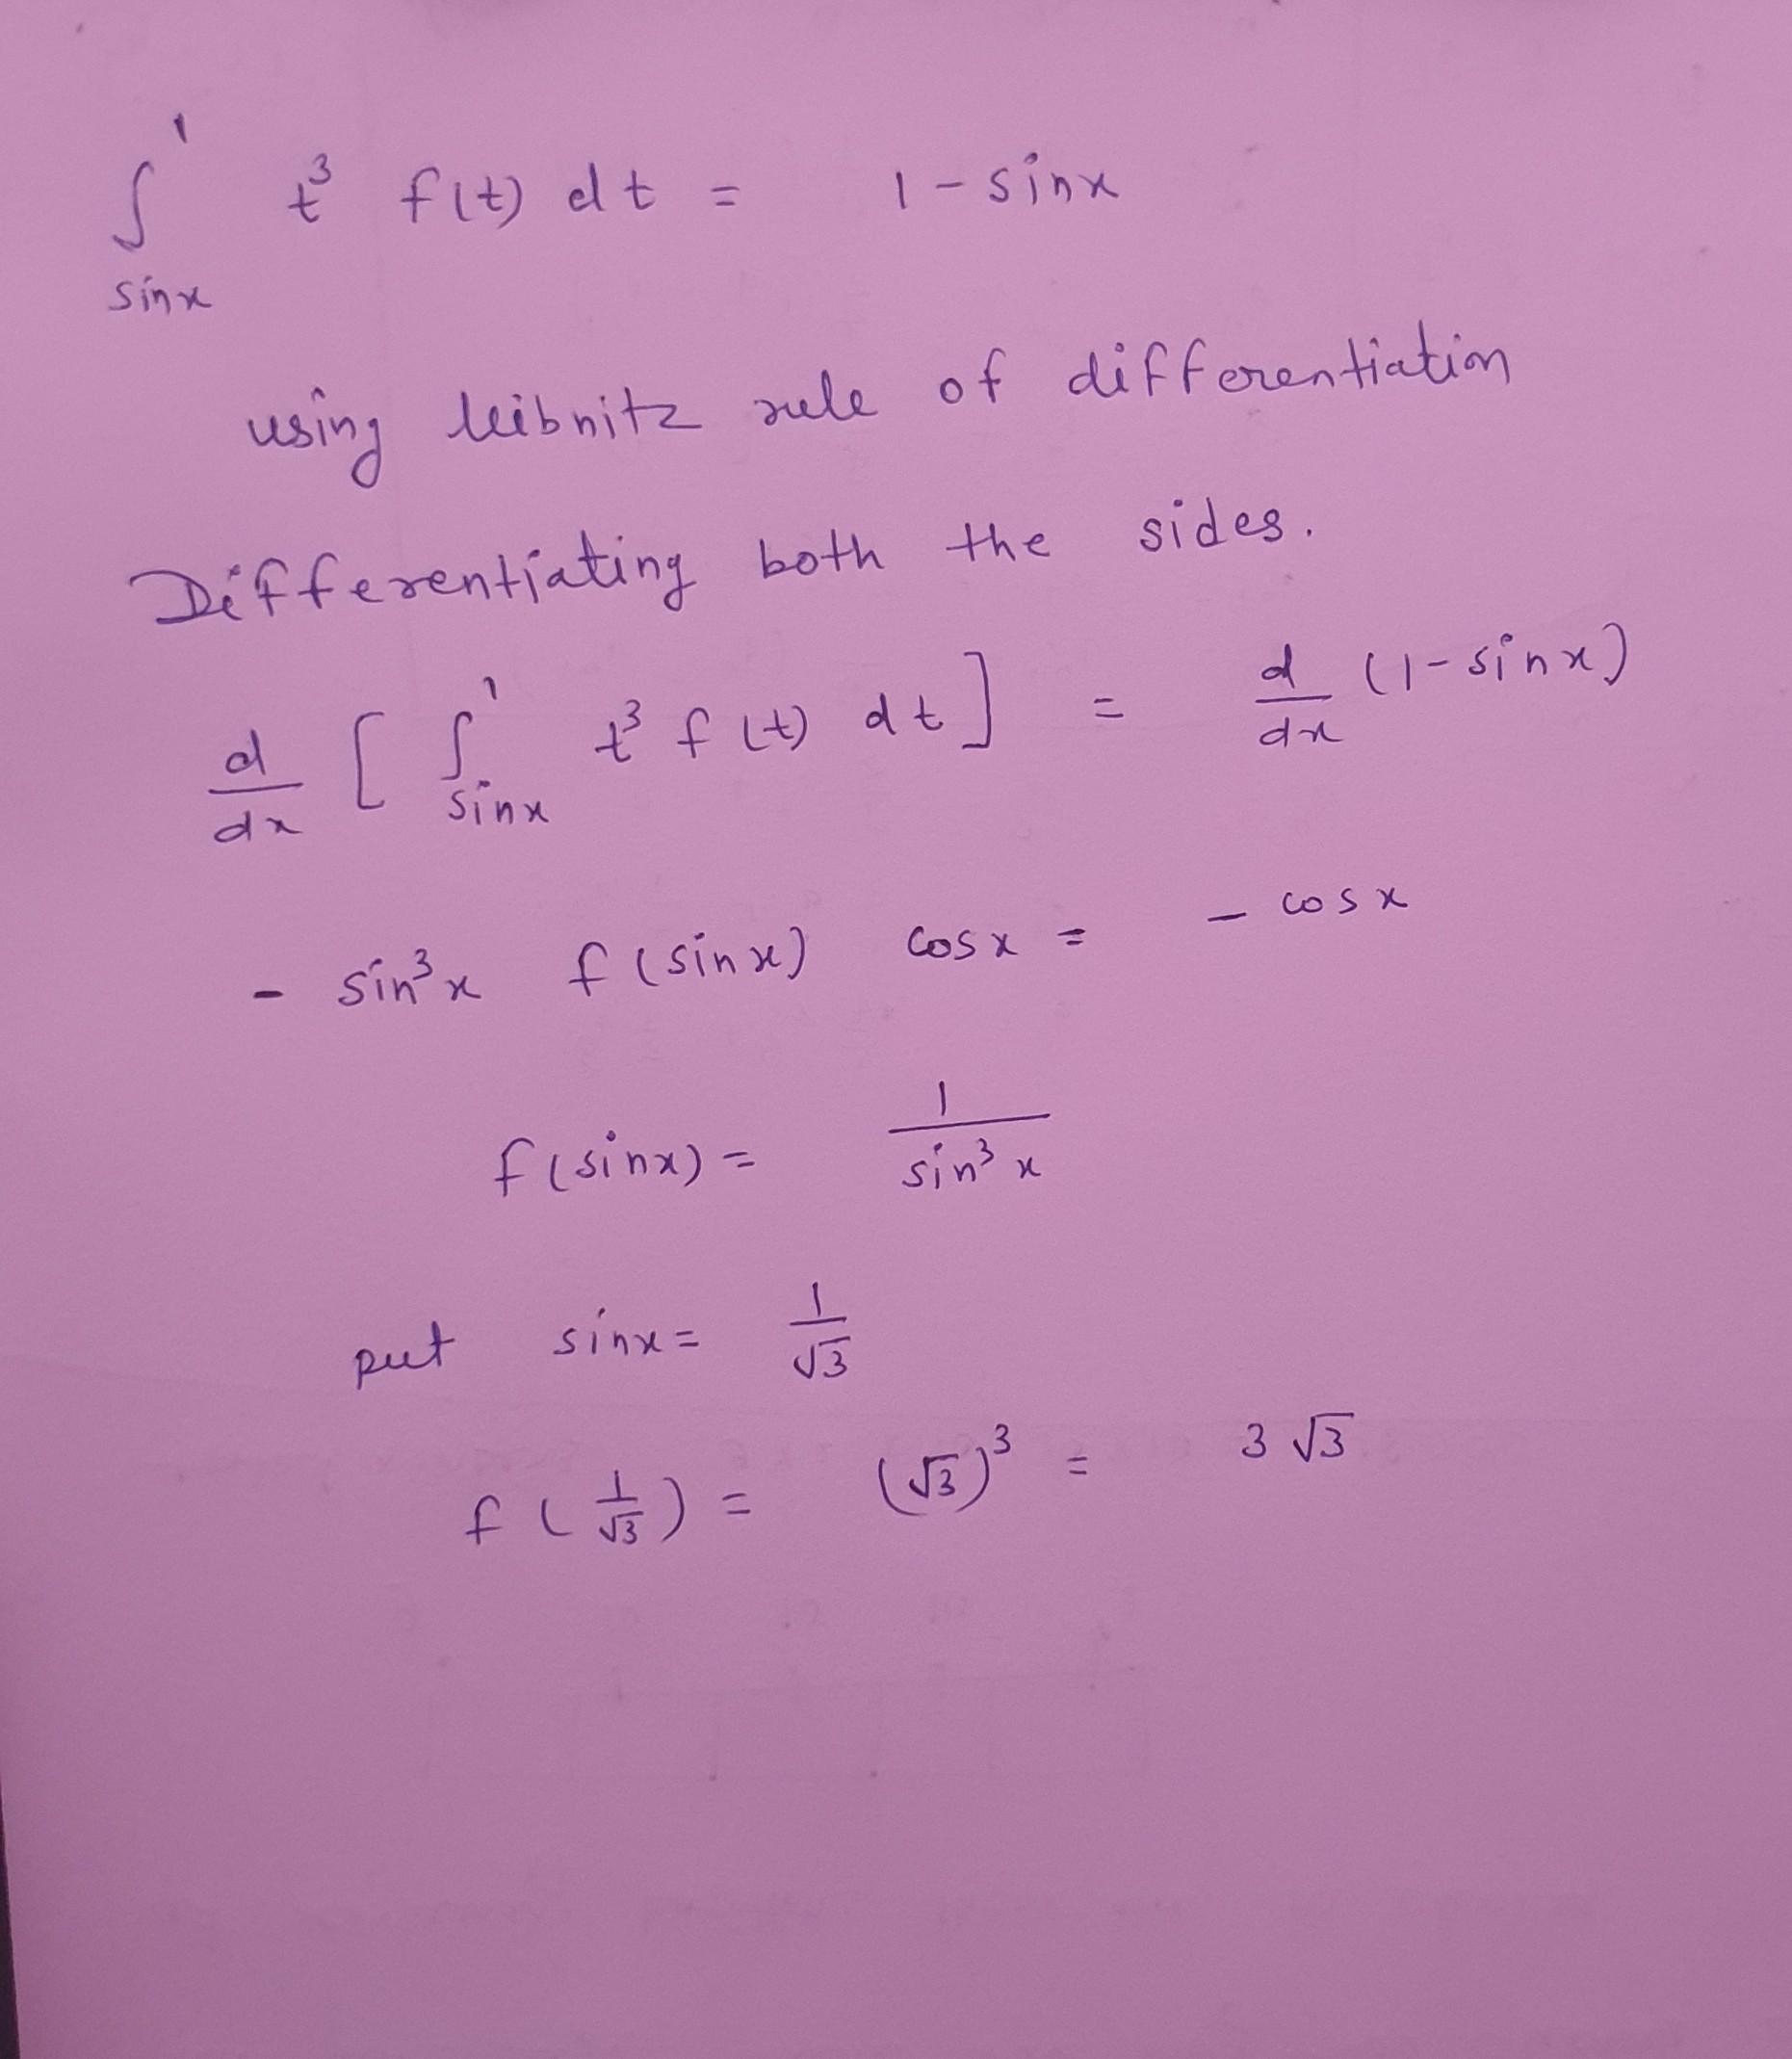 ∫₍sinx₎¹ t³ f(t) dt = 1 - sinx
using leibnitz rule of differentiation
Differentiating both the sides.
d/dx [ ∫₍sinx₎¹ t³ f(t) dt ] = d/dx (1 - sinx)
- sin³x f(sinx) cosx = - cosx
f(sinx) = 1/sin³x
put sinx = 1/√3
f(1/√3) = (√3)³ = 3√3